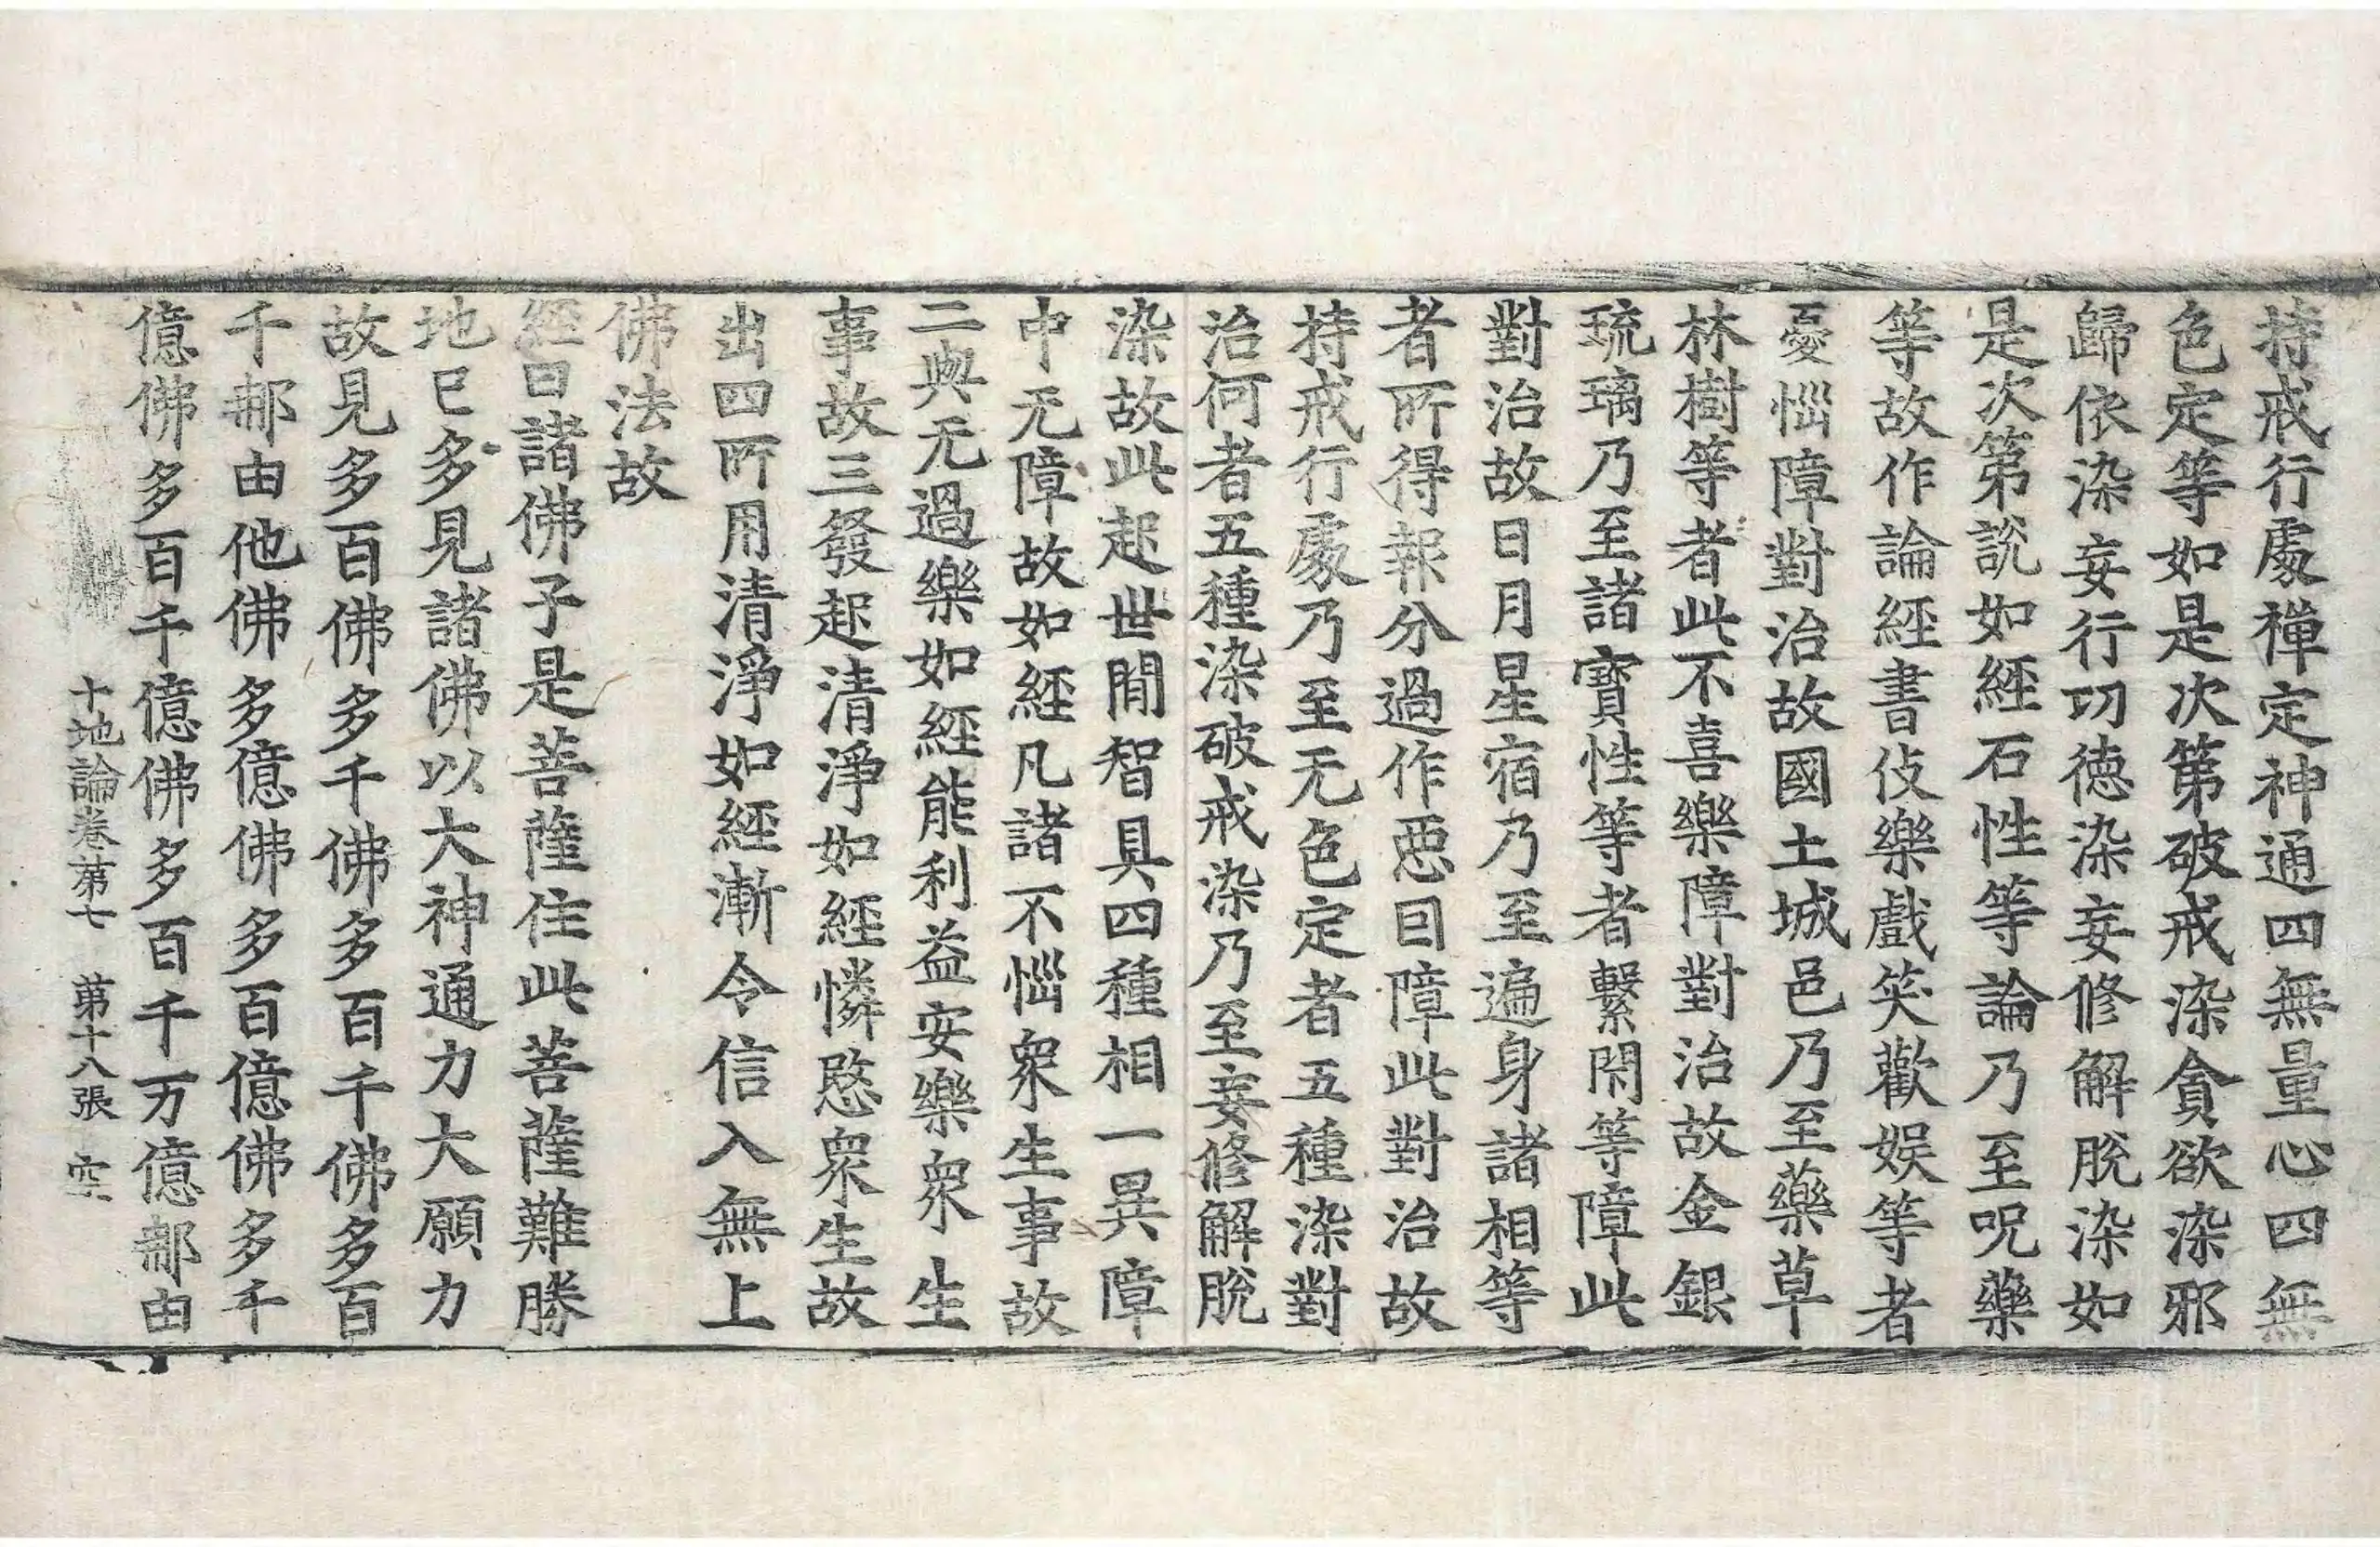 持戒行處禪定神通四無量心四無
色定等如是次第破戒染貪欲染邪
歸依染妄行㓛德染妄修解脫染如
是次第說如經石性等論乃至呪藥
等故作論經書伎樂戲笑歡娛等者
憂惱障對治故國土城邑乃至藥草
林樹等者此不喜樂障對治故金銀
琉璃乃至諸寶性等者繫閇等障此
對治故日月星宿乃至遍身諸相等
者所得報分過作惡因障此對治故
持戒行處乃至无色定者五種染對
治何者五種染破戒染乃至妄修解脫
染故此起世間智具四種相一異障
中无障故如經凡諸不惱衆生事故
二與无過樂如經能利益安樂衆生
事故三發起清淨如經憐愍衆生故
出四所用清淨如經漸令信入無上
佛法故
經曰諸佛子是菩薩住此菩薩難勝
地已多見諸佛以大神通力大願力
故見多百佛多千佛多百千佛多百
千那由他佛多億佛多百億佛多千
億佛多百千億佛多百千万億那由
十地論卷第七 第十八張 空